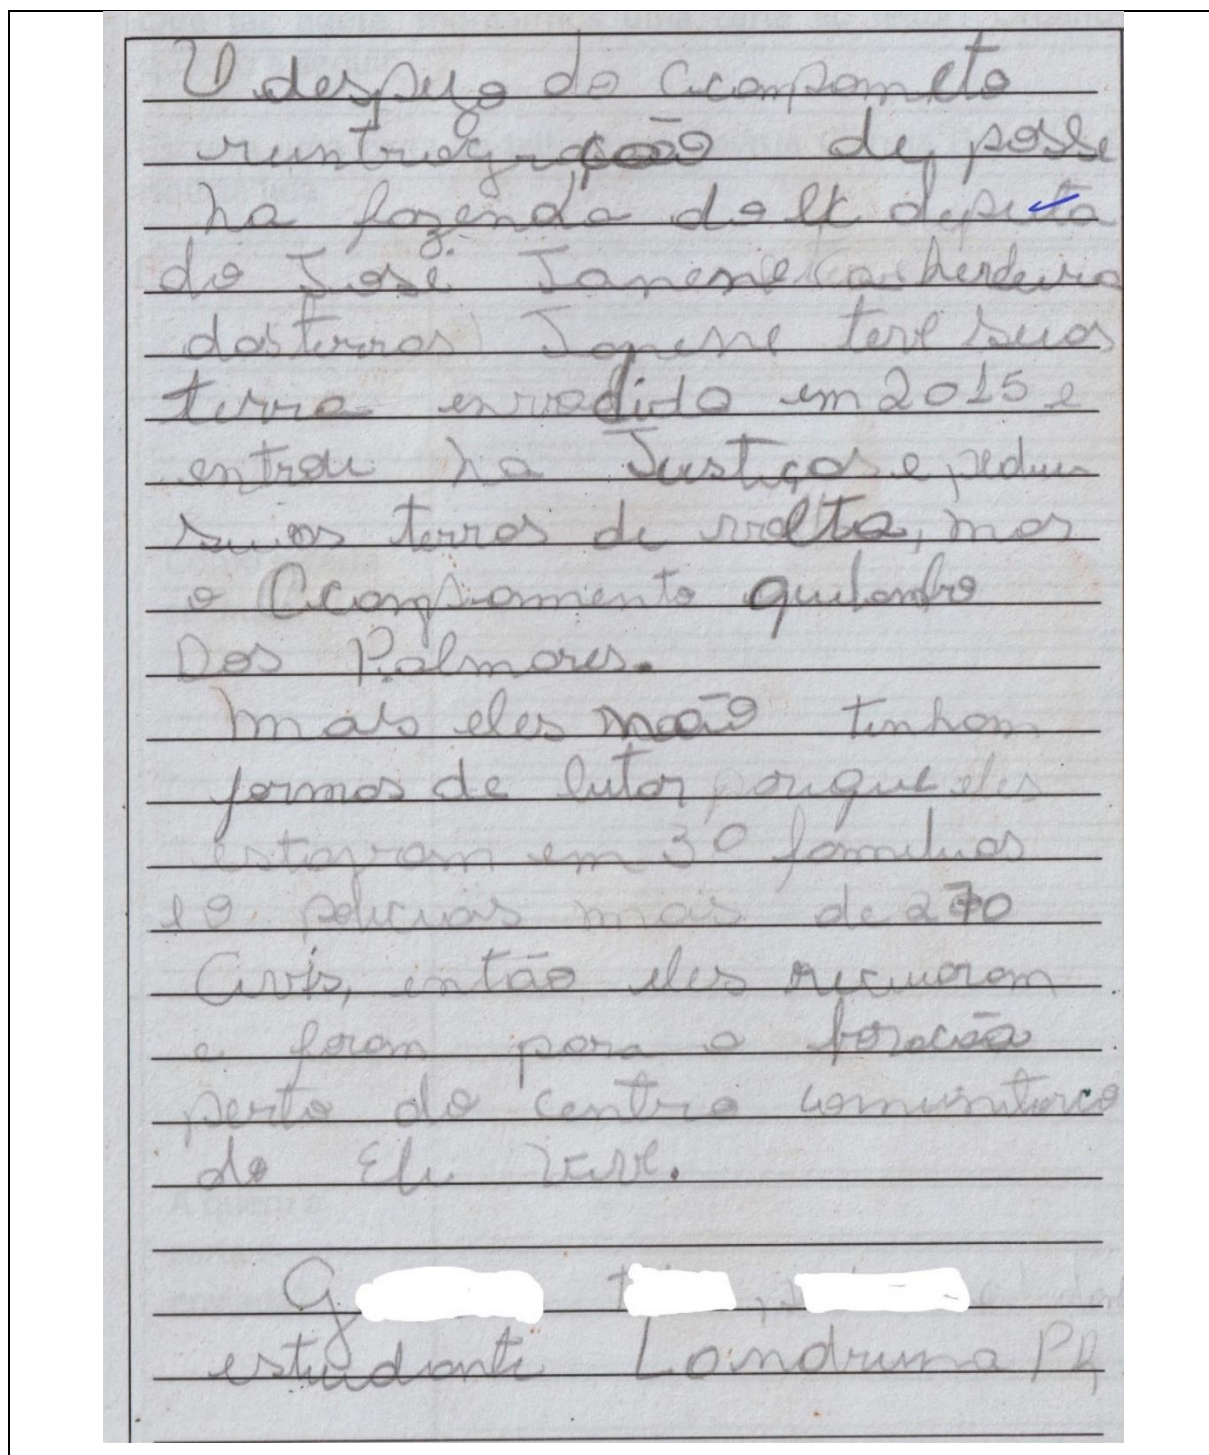 O despejo do acompometo
reintregração de posse
na fazenda do ex deputa
do José Janene (a herdeira
das terras) Janene teve suas
terra envadida em 2015 e
entrou na Justiças e pediu
suas terras de volta, mas
o Acampamento quilombo
Dos Palmares.
mais eles não tinham
formas de lutar porque eles
estavam em 30 familias
e o policias mais de 270
Civis, então eles recuaram
e foram para o baracão
perto do centro comunitario
do Eli Vive.
G
estudante Londrina PR